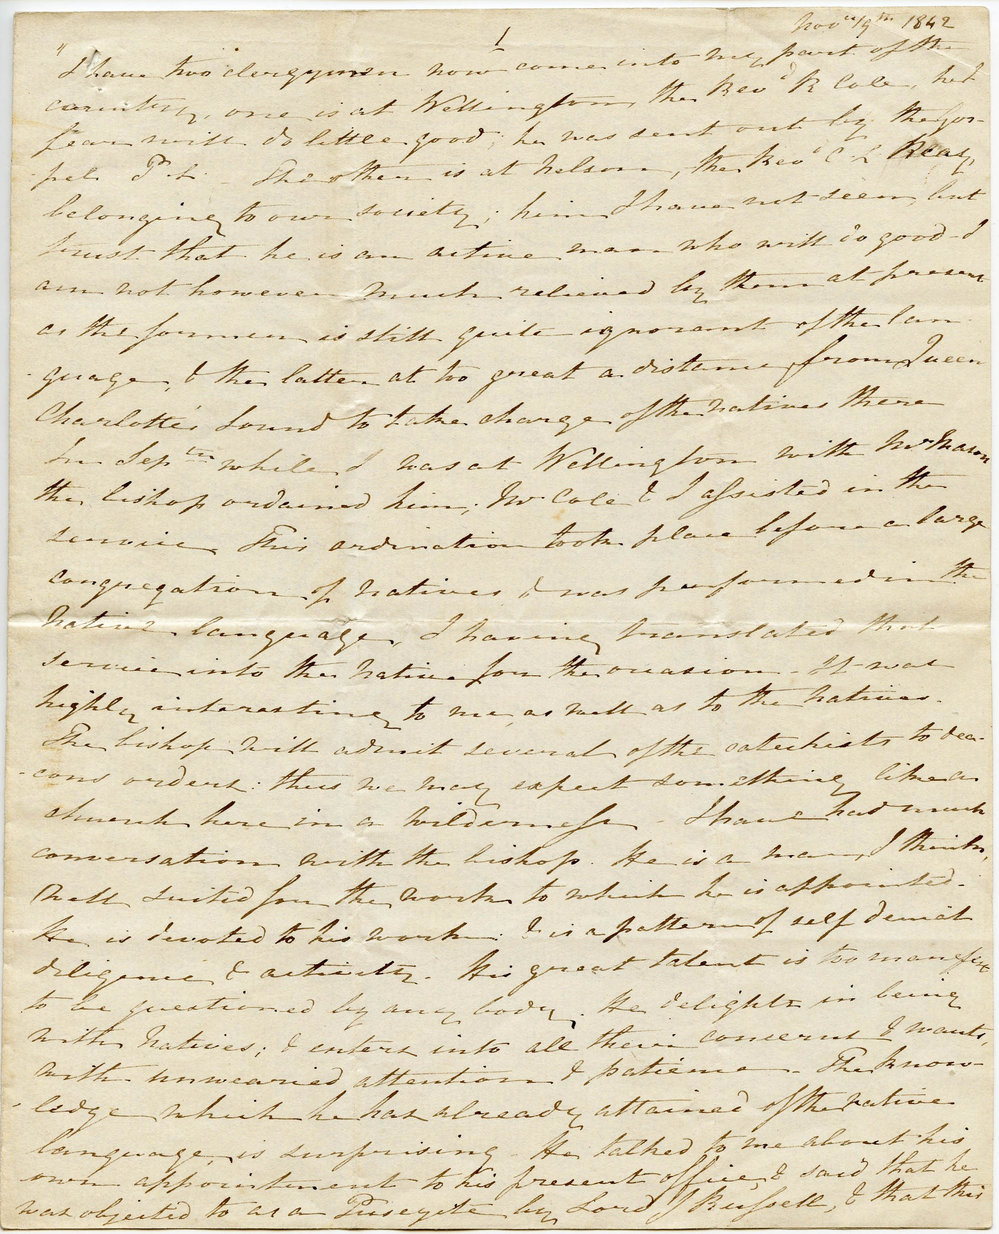 Novr 19th 1842
1
"I have two clergymen now come into my part of the
country, one is at Wellington, the Revd R Cole, he I
fear will do little good; he was sent out by the gos-
pel P. S. The other is at Nelson, the Revd C L Reay
belonging to our society; him I have not seen but
trust that he is an active man who will do good - I
am not however much relieved by them at present
as the former is still quite ignorant of the lan-
guage, & the latter at too great a distance, from Queen
Charlotte's Sound to take charge of the natives there
In Septm while I was at Wellington with Mr Mason
the bishop ordained him; Mr Cole & I assisted in the
service. This ordination took place before a large
congregation of natives & was performed in the
native language, I having translated that
service into the native for the occasion - It was
highly interesting to me, as well as to the natives.
The bishop will admit several of the catechists to dea-
cons orders: thus we may expect something like a
church here in a wilderness - I have had much
conversation with the bishop. He is a man, I think,
well suited for the work to which he is appointed.
He is devoted to his work: & is a pattern of self denial
diligence & activity. His great talent is too manifest
to be questioned by any body. He delights in being
with natives; & enters into all their concerns & wants,
with unwearied attention & patience. The know-
ledge which he has already attained of the native
language, is surprising - He talked to me about his
own appointment to his present office, & said that he
was objected to as a Puseyite by Lord J Russell, & that this